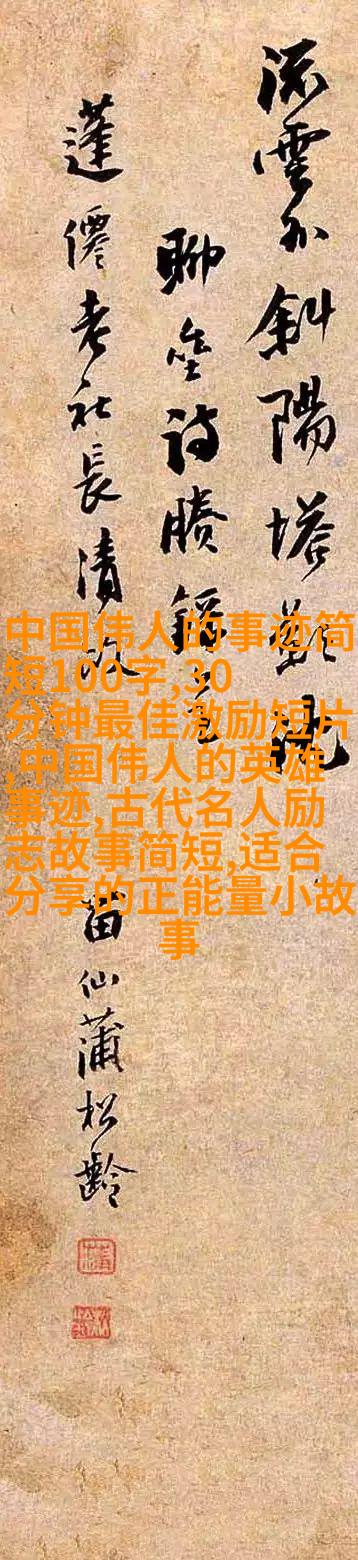 流雲 斜陽塔
聊 詩賸
蓬僊老社長清
留仙蒲松齡
中国伟人的事迹简
短100字,30
分钟最佳激励短片
,中国伟人的英雄
事迹,古代名人励
志故事简短,适合
分享的正能量小故
事